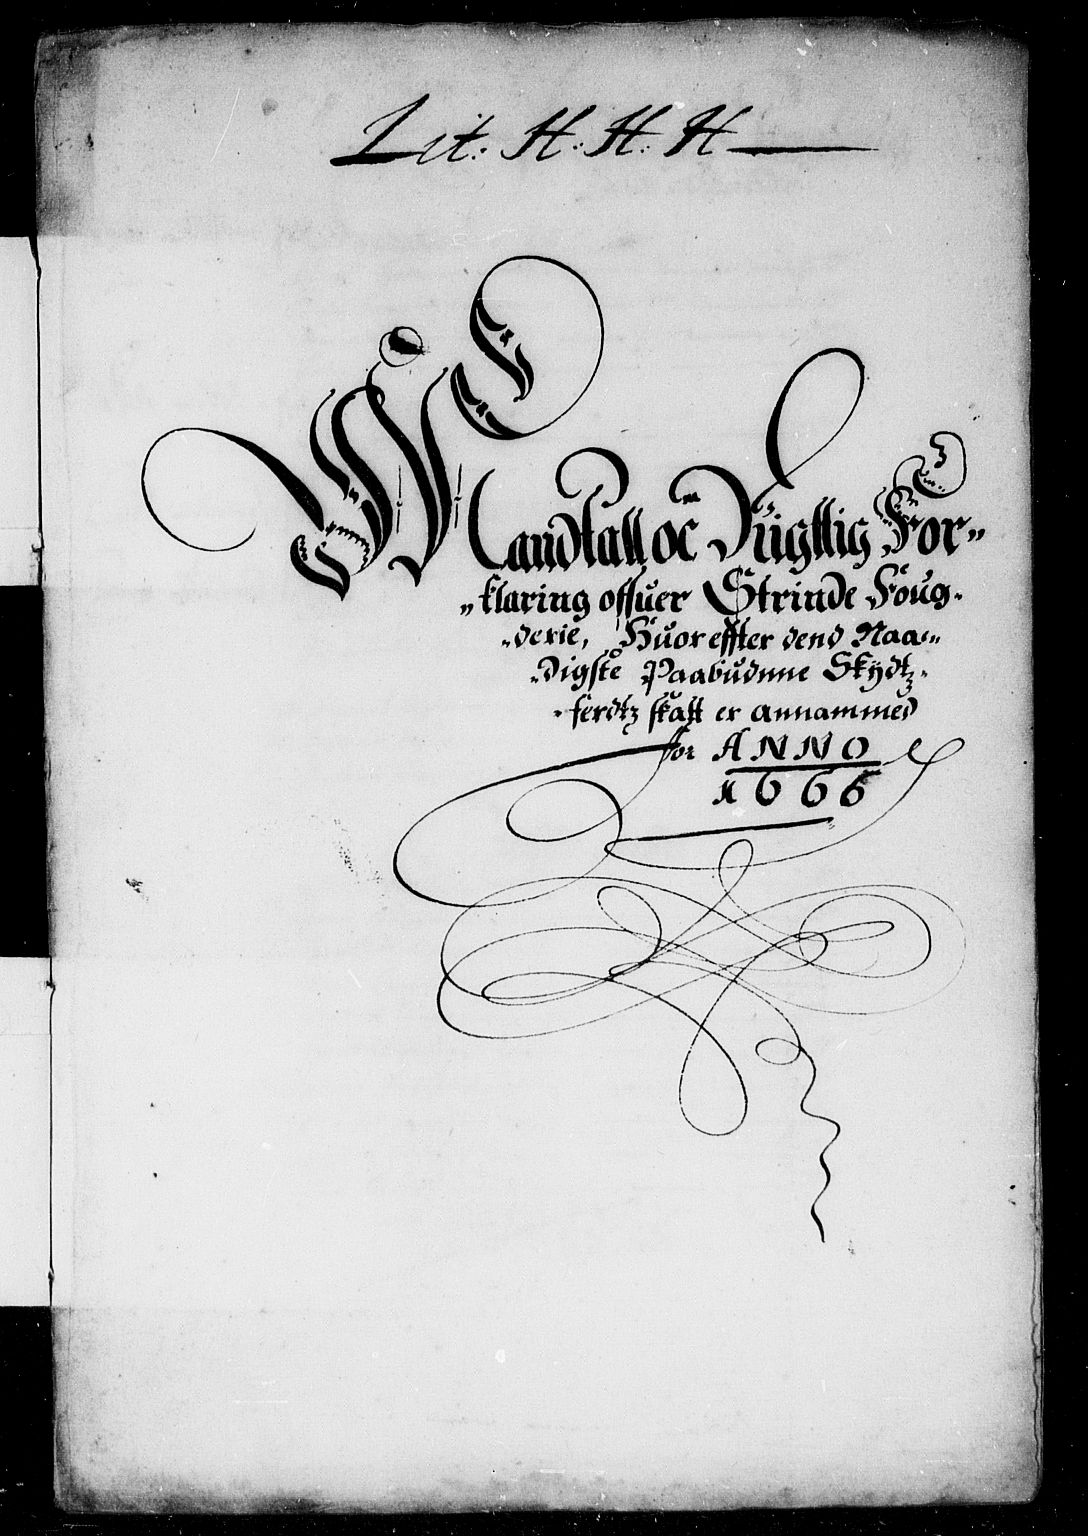 Lit: H: H: H
Mandtall oc Rigttig For„
„klaring offuer Strinde Foug-
-derie, Huor effter dend Naa-
-digste Paabudnne Skydtz-
-ferdtz skatt er annammed
for ANNO
1666